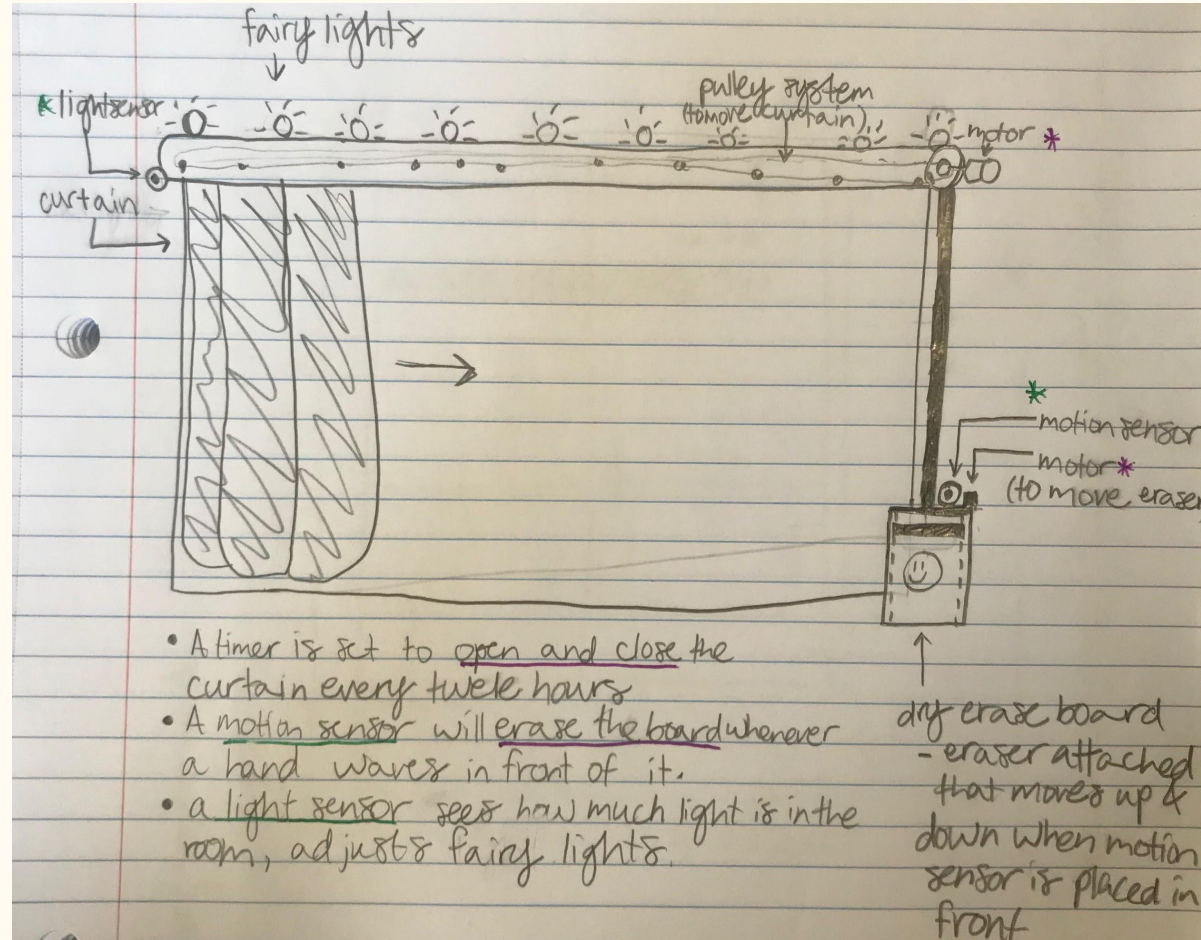 fairy lights
* lightsensor
pulley system
(to move curtain)
motor *
curtain
*
motion sensor
motor *
(to move eraser
• A timer is set to open and close the
curtain every twele hours
• A motion sensor will erase the board whenever
a hand waves in front of it.
• a light sensor sees how much light is in the
room, adjusts fairy lights.
dry erase board
- eraser attached
that moves up &
down when motion
sensor is placed in
front